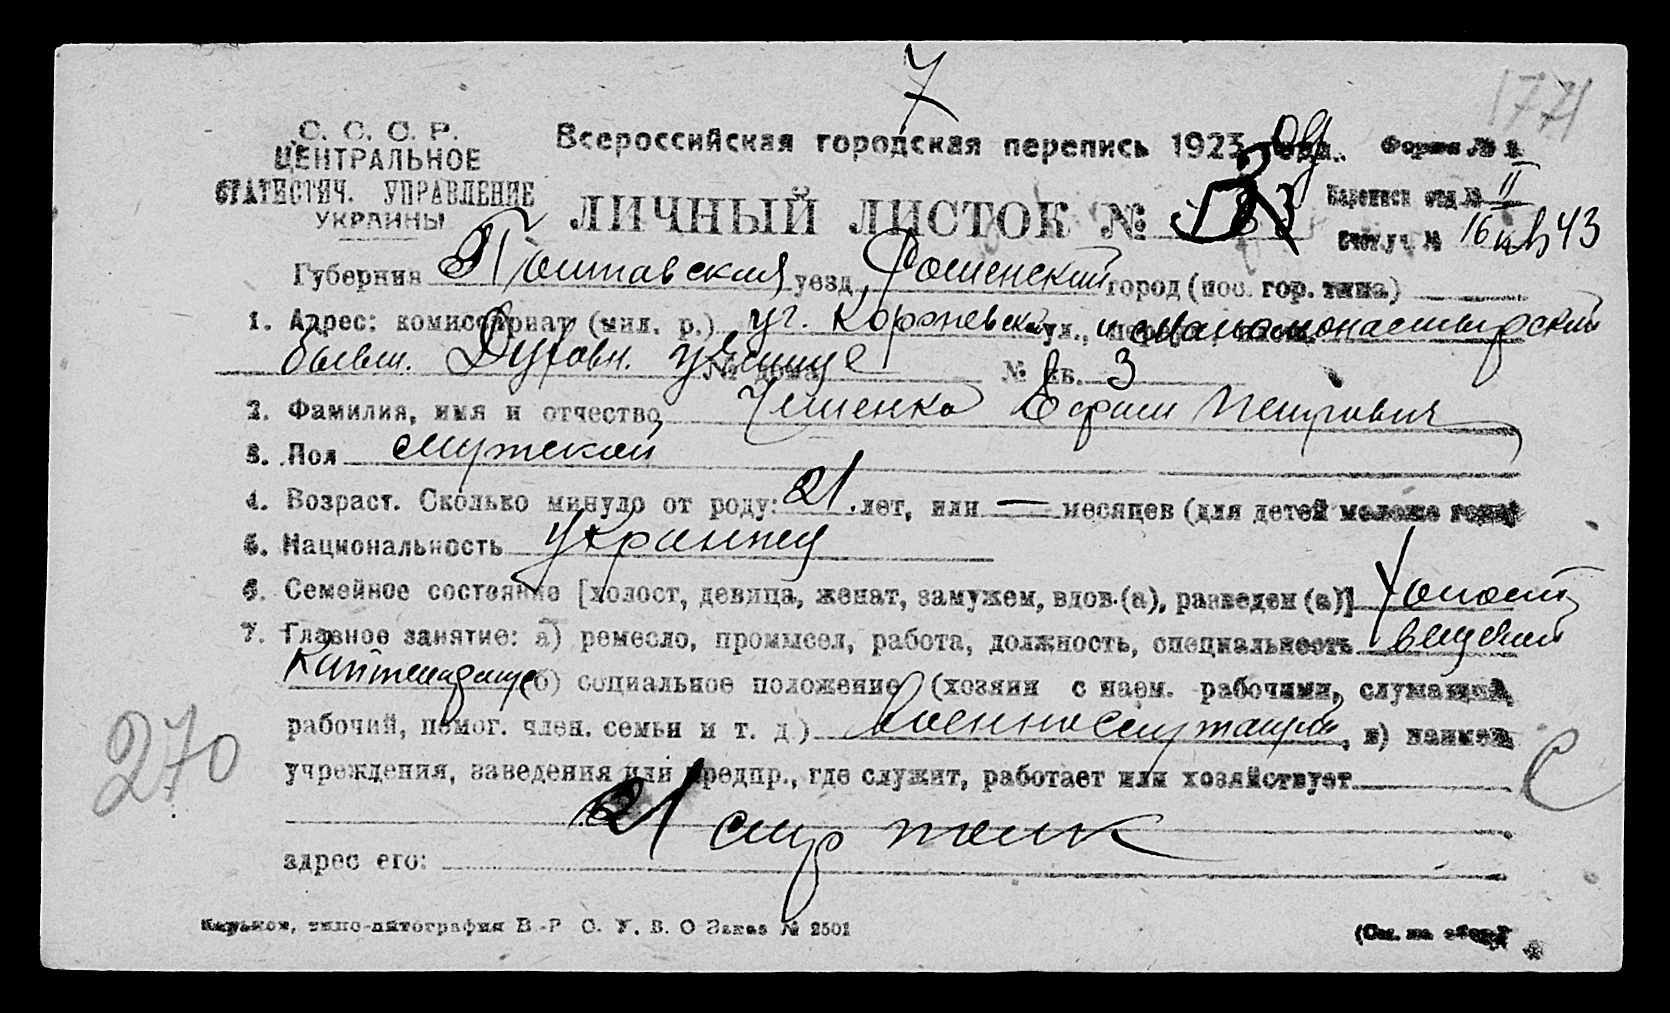 7
1771
С. С. С. Р.
ЦЕНТРАЛЬНОЕ
СТАТИСТИЧ. УПРАВЛЕНИЕ
УКРАИНЫ
Всероссийская городская перепись 1923 Форма № 2
ЛИЧНЫЙ ЛИСТОК №
отд № II
Счет. уч. № 16 кв 43
Губерния Полтавская уезд город (пос. гор. типа)
1. Адрес: комиссариат (мил. р.) уг. Коржевск ул., и
бывш. Духовн. училище № дома № кв. 3
2. Фамилия, имя и отчество Ефим Петрович
3. Пол мужской
4. Возраст. Сколько минуло от роду: 21 лет, или — месяцев (для детей моложе года)
5. Национальность
6. Семейное состояние [холост, девица, женат, замужем, вдов.(а), разведен (а)] Холост
7. Главное занятие: а) ремесло, промысел, работа, должность, специальность
б) социальное положение (хозяин с наем. рабочими, служащий,
рабочий, помог. член. семьи и т. д.) Военнослужащий, в) наимен.
учреждения, заведения или предпр., где служит, работает или хозяйствует
270
С
21 стр полк
адрес его:
Харьков, типо-литография В.-Р. С. У. В. О Заказ № 2501
(См. на обор.)